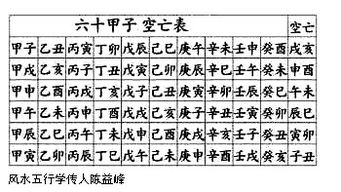 六十甲子 空亡表 空亡
甲子 乙丑 丙寅 丁卯 戊辰 己巳 庚午 辛未 壬申 癸酉 戌亥
甲戌 乙亥 丙子 丁丑 戊寅 己卯 庚辰 辛巳 壬午 癸未 申酉
甲申 乙酉 丙戌 丁亥 戊子 己丑 庚寅 辛卯 壬辰 癸巳 午未
甲午 乙未 丙申 丁酉 戊戌 己亥 庚子 辛丑 壬寅 癸卯 辰巳
甲辰 乙巳 丙午 丁未 戊申 己酉 庚戌 辛亥 壬子 癸丑 寅卯
甲寅 乙卯 丙辰 丁巳 戊午 己未 庚申 辛酉 壬戌 癸亥 子丑
风水五行学传人陈益峰